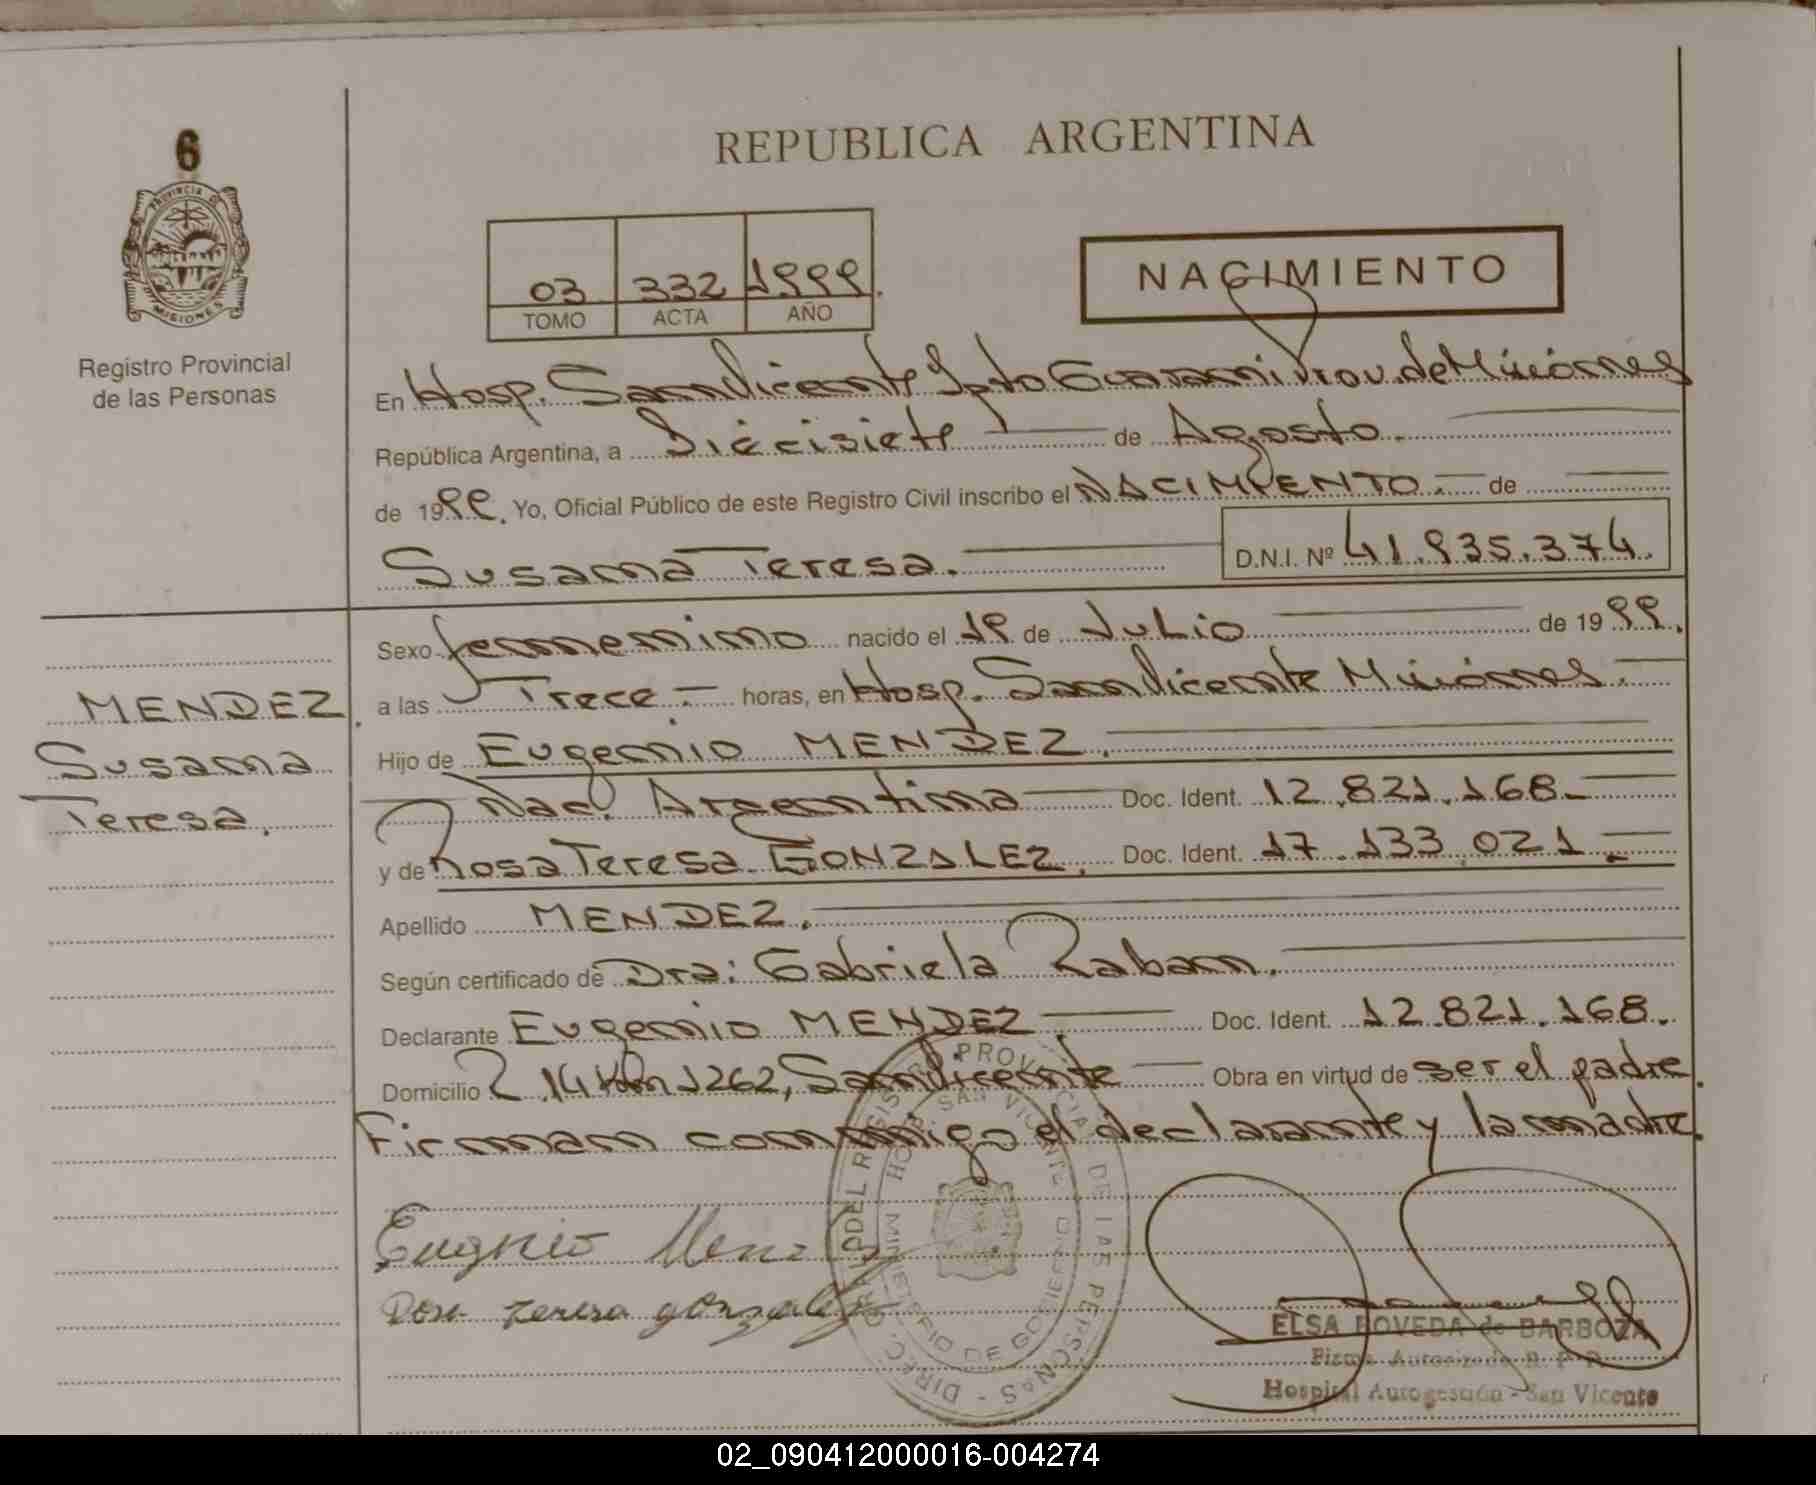 6
PROVINCIA DE
MISIONES
Registro Provincial
de las Personas
REPUBLICA ARGENTINA
03 332 1999.
TOMO ACTA AÑO
NACIMIENTO
En Hosp. San Vicente Dpto Guarani Prov. de Misiones
República Argentina, a Diecisiete de Agosto.
de 1999. Yo, Oficial Público de este Registro Civil inscribo el NACIMIENTO.- de
Susana Teresa. D.N.I. Nº 41.935.374.
Sexo femenino nacido el 19 de Julio de 1999.
a las Trece.- horas, en Hosp. San Vicente Misiones.-
Hijo de Eugenio MENDEZ.
Nac. Argentina Doc. Ident. 12.821.168.-
y de Rosa Teresa GONZALEZ. Doc. Ident. 17.133.021.-
Apellido MENDEZ.
Según certificado de Dra: Gabriela Raban.
Declarante Eugenio MENDEZ Doc. Ident. 12.821.168.
Domicilio R. 14 Km 1262, San Vicente Obra en virtud de ser el padre.
Firman conmigo el declarante y la madre.
MENDEZ.
Susana
Teresa.
Eugenio Mendez
Rosa teresa gonzalez
PROVINCIAL DE LAS PERSONAS - DIREC. GRAL. DEL REGISTRO
HOSP. SAN VICENTE
MINISTERIO DE GOBIERNO
ELSA POVEDA de BARBOZA
Firma Autorizada R. P. P.
Hospital Autogestión - San Vicente
02_090412000016-004274